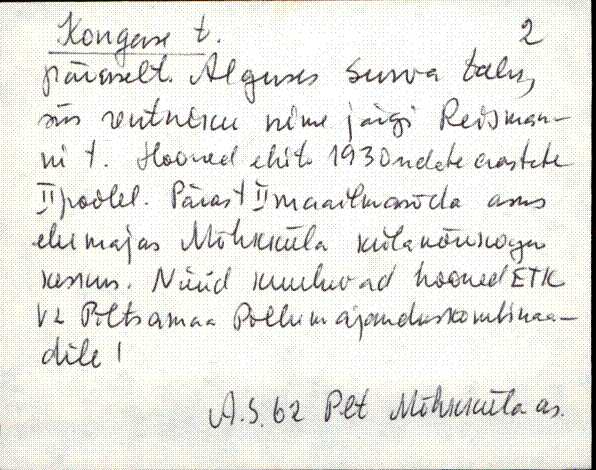 Kongase t. 2
päraselt. Alguses Surva talu,
siis rentniku nime järgi Reisman-
ni t. Hooned ehit. 1930ndate aastate
II poolel. Pärast II maailmasõda asus
elumajas Mõhkküla külanõukogu
keskus. Nüüd kuuluvad hooned ETK
VL Põltsamaa Põllumajanduskombinaa-
dile!
A.S. 62 Plt Mõhkküla as.